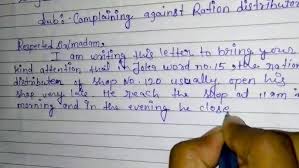 Sub:- Complaining against Ration distributor
Respected Sir/madam,
I am writing this letter to bring your
kind attention that in Joler word no. 15, the ration
distributer of shop No. 120 usually open his
shop very late. He reach the shop at 11 am in
morning and in the evening he close